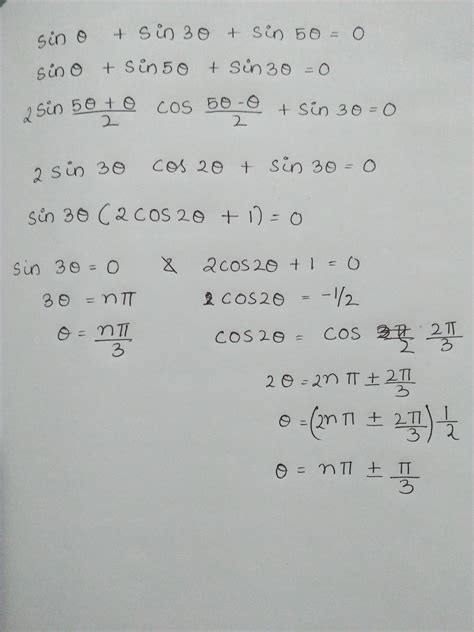 sin θ + sin 3θ + sin 5θ = 0
sin θ + sin 5θ + sin 3θ = 0
2 sin (5θ + θ)/2 cos (5θ - θ)/2 + sin 3θ = 0
2 sin 3θ cos 2θ + sin 3θ = 0
sin 3θ (2 cos 2θ + 1) = 0
sin 3θ = 0 & 2 cos 2θ + 1 = 0
3θ = nπ 2 cos 2θ = -1/2
θ = nπ/3 cos 2θ = cos 2π/3
2θ = 2nπ ± 2π/3
θ = (2nπ ± 2π/3) 1/2
θ = nπ ± π/3